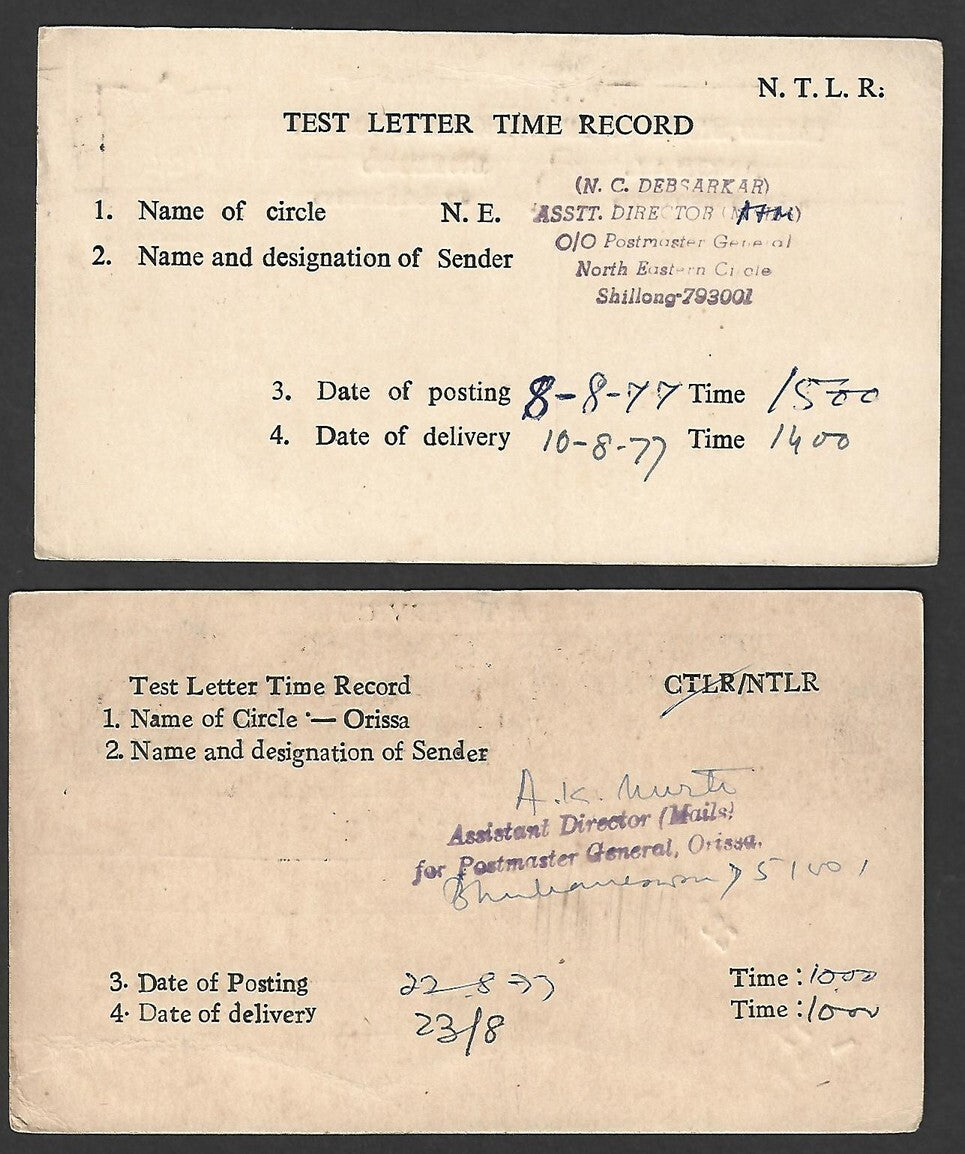 N. T. L. R:
TEST LETTER TIME RECORD
(N. C. DEBSARKAR)
1. Name of circle N. E. ASSTT. DIRECTOR
O/O Postmaster General
2. Name and designation of Sender
North Eastern Circle
Shillong-793001
3. Date of posting 8-8-77 Time 1500
4. Date of delivery 10-8-77 Time 1400
Test Letter Time Record CTLR/NTLR
1. Name of Circle :— Orissa
2. Name and designation of Sender
A.K. Murti
Assistant Director (Mails)
for Postmaster General, Orissa.
Bhubaneswar 751001
3. Date of Posting 22-8-77 Time : 1000
4. Date of delivery 23/8 Time : 1000